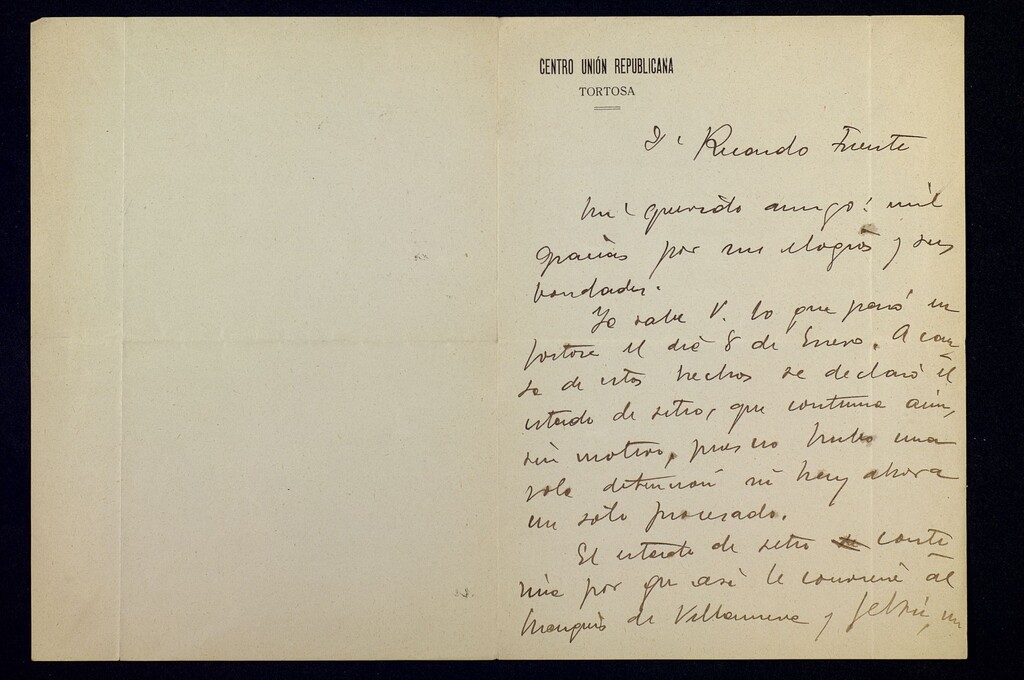 CENTRO UNIÓN REPUBLICANA
TORTOSA
Dn Ricardo Fuente
Mi querido amigo: mil
gracias por sus elogios y sus
bondades.
Ya sabe V. lo que pasó en
Tortosa el día 8 de Enero. A cau
sa de estos hechos se declaró el
estado de sitio, que continua aún,
sin motivo, pues no hubo una
sola detención ni hay ahora
un sólo procesado.
El estado de sitio conti
núa por que así le conviene al
Marqués de Villanueva y Geltrú, un